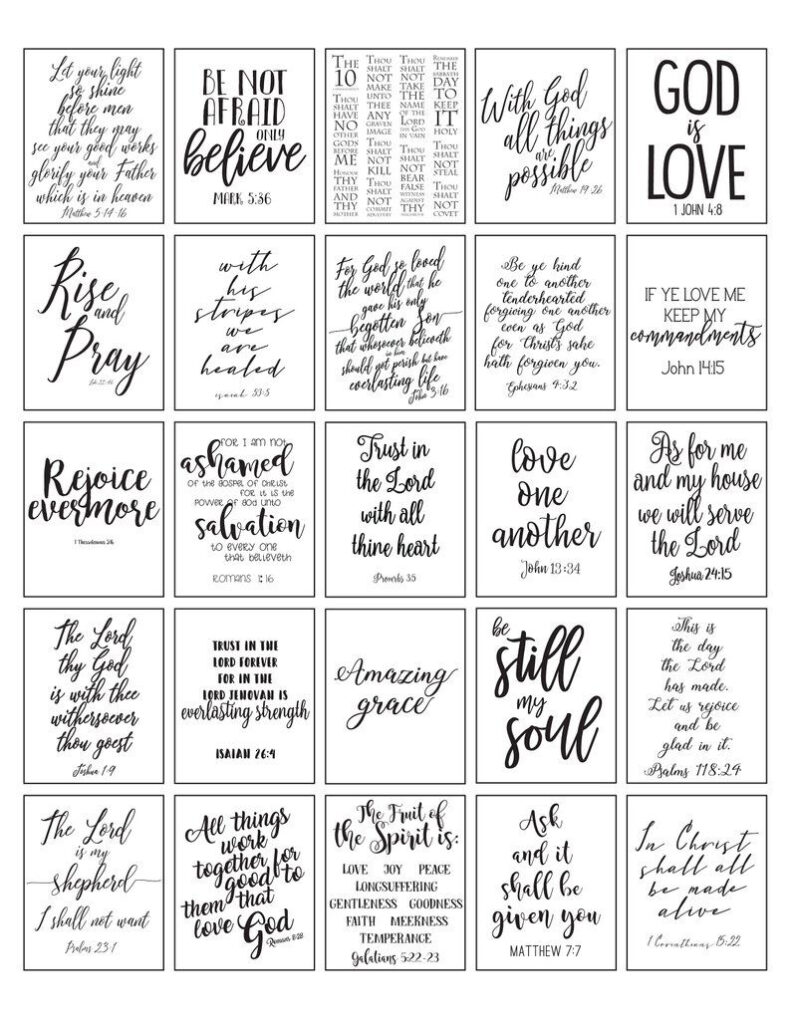 Let your light
so shine
before men
that they may
see your good works
and
glorify your Father
which is in heaven
Matthew 5:14-16
BE NOT
AFRAID
ONLY
believe
MARK 5:36
THE
10
THOU
SHALT
HAVE
NO
OTHER
GODS
BEFORE
ME
HONOUR
THY
FATHER
AND
THY
MOTHER
THOU
SHALT
NOT
MAKE
UNTO
THEE
ANY
GRAVEN
IMAGE
THOU
SHALT
NOT
KILL
THOU
SHALT
NOT
COMMIT
ADULTERY
THOU
SHALT
NOT
TAKE
THE
NAME
OF THE
LORD
THY GOD
IN VAIN
THOU
SHALT
NOT
BEAR
FALSE
WITNESS
AGAINST
THY
NEIGHBOR
REMEMBER
THE
SABBATH
DAY
TO
KEEP
IT
HOLY
THOU
SHALT
NOT
STEAL
THOU
SHALT
NOT
COVET
With God
all things
are
possible
Matthew 19:26
GOD
is
LOVE
1 JOHN 4:8
Rise
and
Pray
with
his
stripes
we
are
healed
isaiah 53:5
For God so loved
the world that he
gave his only
begotten Son
that whosoever believeth
in him
should not perish but have
everlasting life
John 3:16
Be ye kind
one to another
tenderhearted
forgiving one another
even as God
for Christ's sake
hath forgiven you.
Ephesians 4:32
IF YE LOVE ME
KEEP MY
commandments
John 14:15
Rejoice
evermore
1 Thessalonians 5:16
FOR I AM NOT
ashamed
OF THE GOSPEL OF CHRIST
FOR IT IS THE
POWER OF GOD UNTO
salvation
TO EVERY ONE
THAT BELIEVETH
ROMANS 1:16
Trust in
the Lord
with all
thine heart
Proverbs 3:5
love
one
another
John 13:34
As for me
and my house
we will serve
the Lord
Joshua 24:15
The Lord
thy God
is with thee
withersoever
thou goest
Joshua 1:9
TRUST IN THE
LORD FOREVER
FOR IN THE
LORD JEHOVAH IS
everlasting strength
ISAIAH 26:4
Amazing
grace
be
still
my
soul
This is
the day
the Lord
has made.
Let us rejoice
and be
glad in it.
Psalms 118:24
The Lord
is my
shepherd
I shall not want
Psalms 23:1
All things
work
together for
good to
them that
love God
Romans 8:28
The Fruit of
the Spirit is:
LOVE JOY PEACE
LONGSUFFERING
GENTLENESS GOODNESS
FAITH MEEKNESS
TEMPERANCE
Galatians 5:22-23
Ask
and it
shall be
given you
MATTHEW 7:7
In Christ
shall all
be made
alive
1 Corinthians 15:22